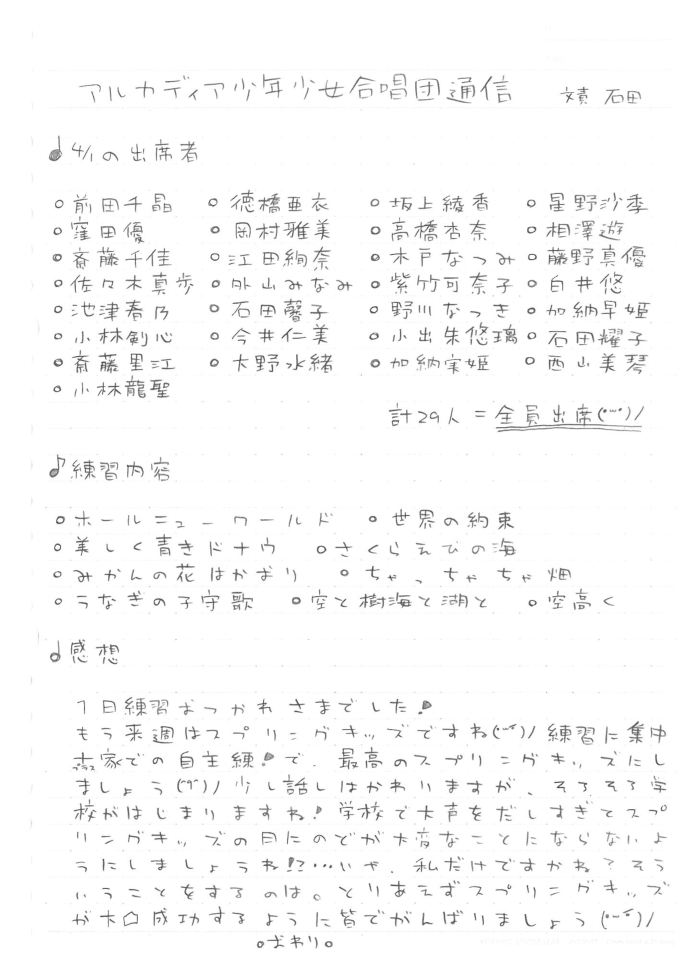 アルカディア少年少女合唱団通信 文責 石田
4/1の出席者
○前田千晶 ○徳橋亜衣 ○坂上綾香 ○星野沙季
○窪田優 ○岡村雅美 ○高橋杏奈 ○相澤遊
○斎藤千佳 ○江田絢奈 ○木戸なつみ ○藤野真優
○佐々木真歩 ○外山みなみ ○紫竹可奈子 ○白井悠
○池津春乃 ○石田馨子 ○野川なつき ○加納早姫
○小林剣心 ○今井仁美 ○小出朱悠璃 ○石田耀子
○斎藤里江 ○大野水緒 ○加納実姫 ○西山美琴
○小林龍聖
計29人=全員出席(･ｰ･)/
♪練習内容
○ホールニューワールド ○世界の約束
○美しく青きドナウ ○さくらえびの海
○みかんの花はかおり ○ちゃっちゃちゃ畑
○うなぎの子守歌 ○空と樹海と湖と ○空高く
♩感想
1日練習おつかれさまでした!
もう来週はスプリングキッズですね(･ｰ･)/練習に集中
家での自主練!で、最高のスプリングキッズにし
ましょう(･ｰ･)/少し話しはかわりますが、そろそろ学
校がはじまりますね!学校で大声をだしすぎてスプ
リングキッズの日にのどが大変なことにならないよ
うにしましょうね!?…いや、私だけですかね?そう
いうことをするのは。とりあえずスプリングキッズ
が大成功するように皆でがんばりましょう(･ｰ･)/
○おわり○